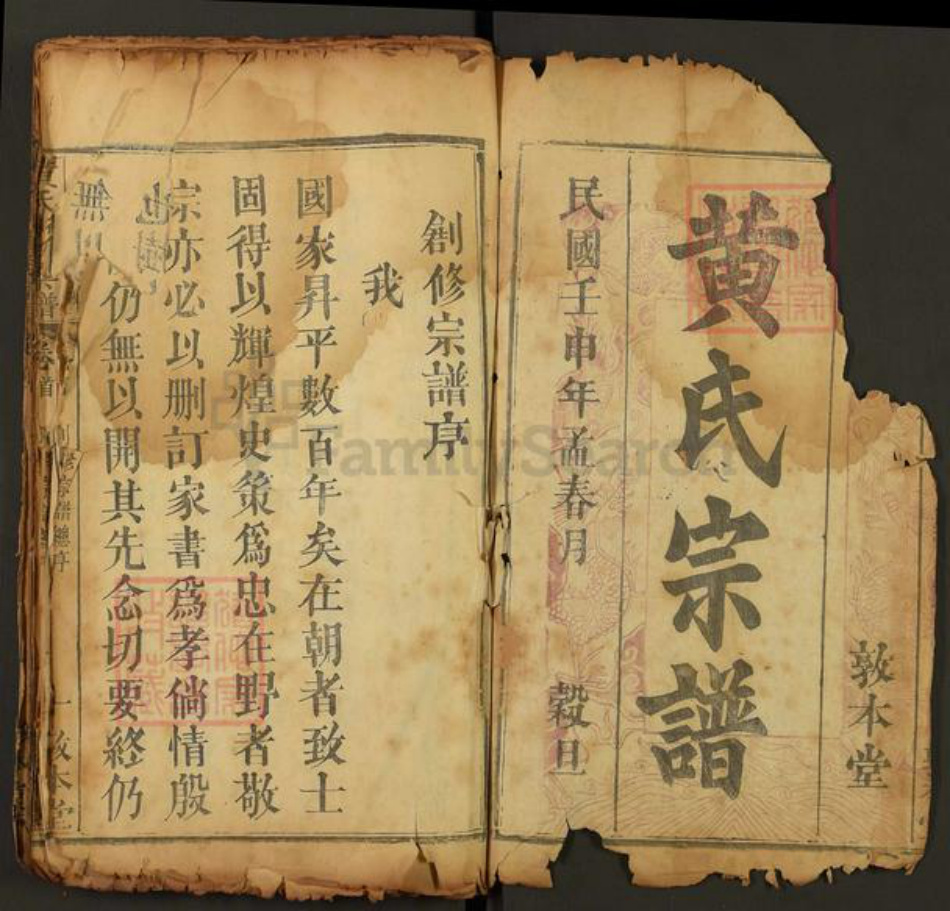 敦本堂
黃氏宗譜
民國壬申年孟春月 穀旦
創修宗譜序
我
國家昇平數百年矣在朝者致士
固得以輝煌史策爲忠在野者敬
宗亦必以删訂家書爲孝倘情殷
仍無以開其先念切要終仍
無
卷首
FamilySearch